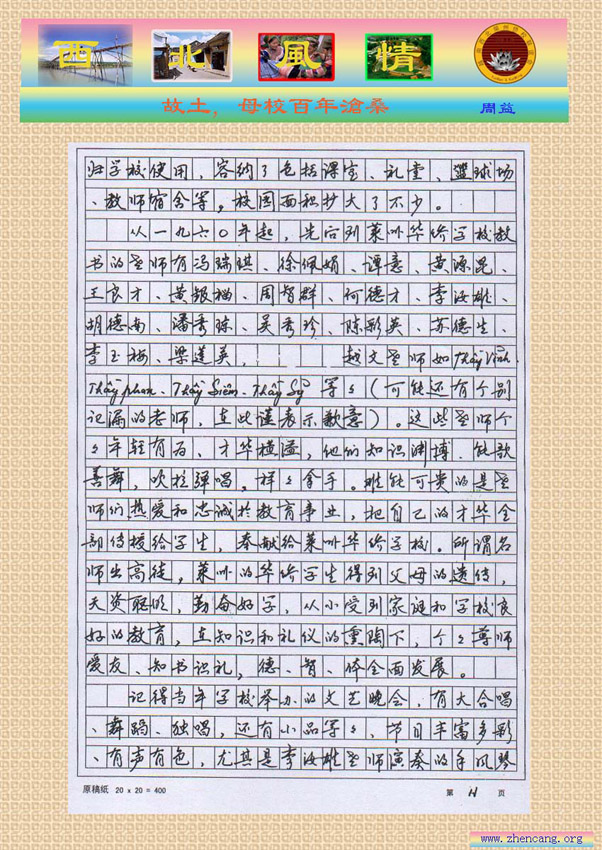 西北風情
故土，母校百年滄桑 周益
归学校使用，容纳了包括课室、礼堂、篮球场
、教师宿舍等。校园面积扩大了不少。
从一九六〇年起，先后到莱州华侨学校教
书的老师有冯瑞琪、徐佩娟、谭意、黄源昆、
王良才、黄银福、周智群、何德才、李汝雄、
胡德南、潘秀琼、吴秀珍、陈彩英、苏德生、
李玉梅、梁莲英， 越文老师如 Thầy Vĩnh
Thầy phan、Thầy Siêm、Thầy Sỹ 等等（可能还有个别
记漏的老师，在此谨表示歉意）。这些老师个
々年轻有为、才华横溢，他们知识渊博、能歌
善舞，吹拉弹唱，样々拿手。难能可贵的是老
师们热爱和忠诚于教育事业，把自己的才华全
部传授给学生，奉献给莱州华侨学校。所谓名
师出高徒，莱州的华侨学生得到父母的遗传，
天资聪明，勤奋好学，从小受到家庭和学校良
好的教育，在知识和礼仪的熏陶下，个々尊师
爱友、知书识礼，德、智、体全面发展。
记得当年学校举办的文艺晚会，有大合唱
、舞蹈、独唱，还有小品等々，节目丰富多彩
、有声有色，尤其是李汝雄老师演奏的手风琴
原稿纸 20 x 20 = 400 第 页
www.zhencang.org